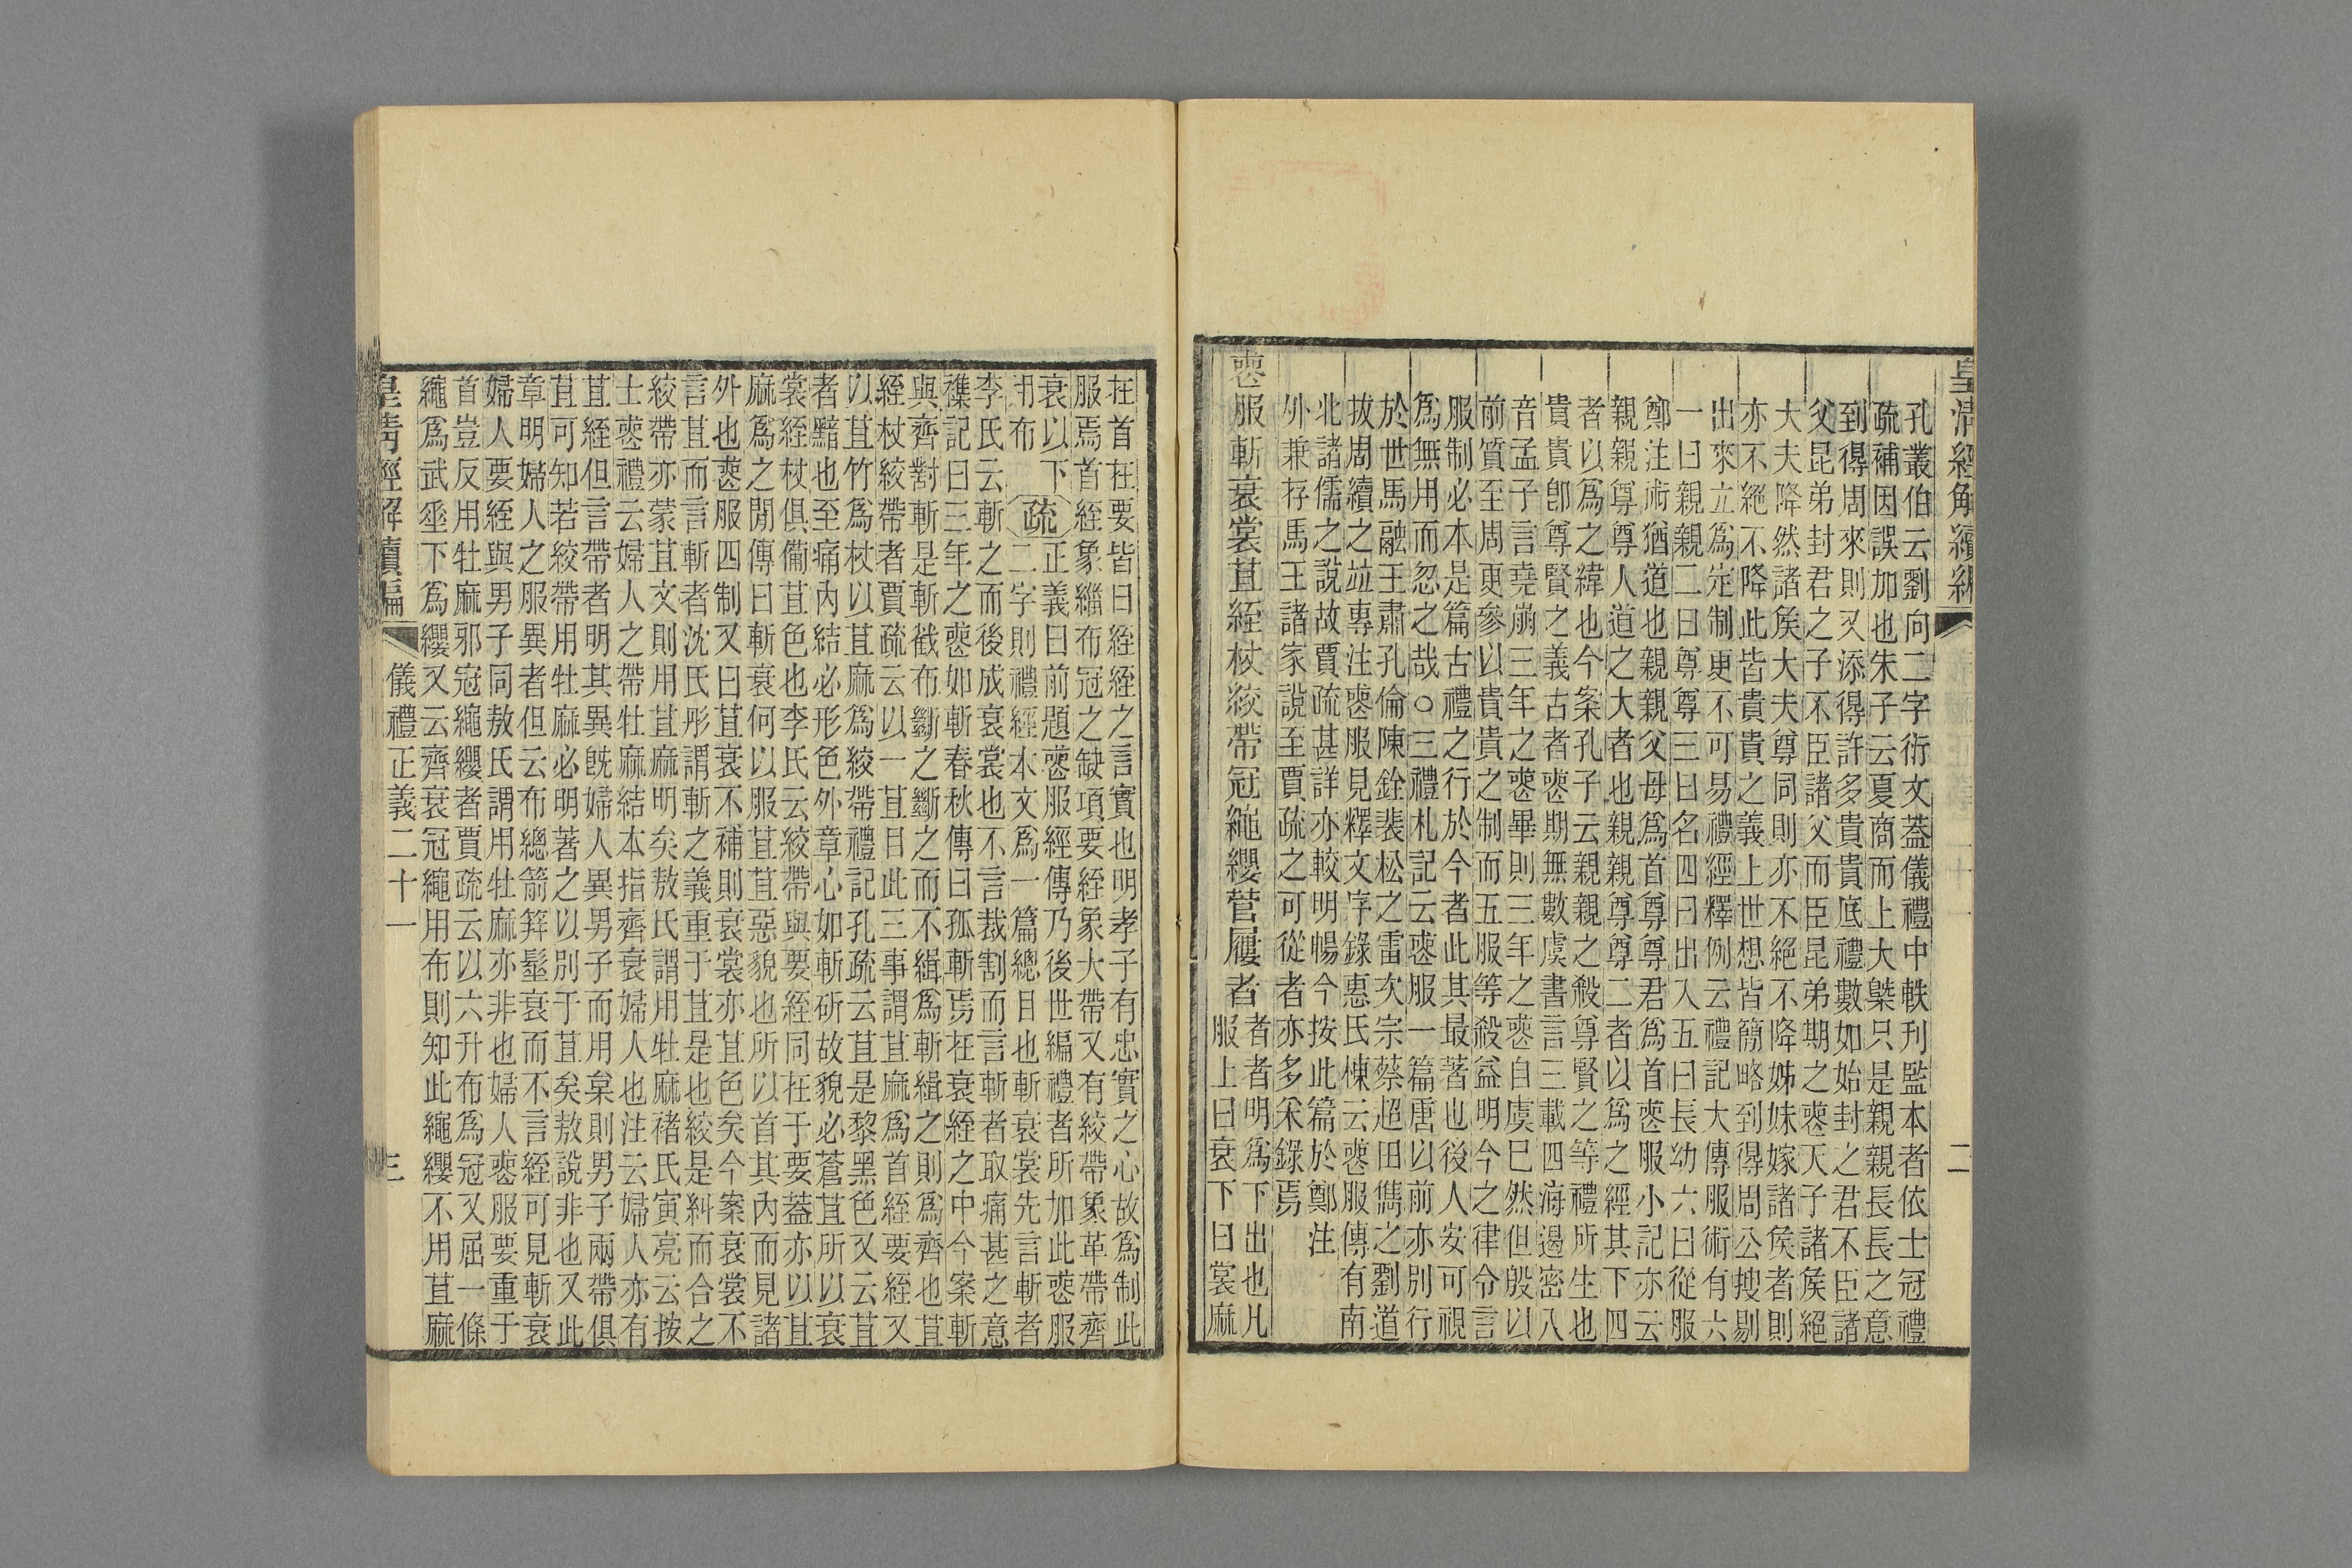 皇清經解續編
二
孔叢伯云劉向二字衍文蓋儀禮中軼刊監本者依士冠禮
疏補因誤加也朱子云夏商而上大槩只是親親長長之意
到得周來則又添得許多貴貴底禮數如始封之君不臣諸
父昆弟封君之子不臣諸父而臣昆弟期之喪天子諸侯絕
大夫降然諸侯大夫尊同則亦不絕不降姊妹嫁諸侯者則
亦不絕不降此皆貴貴之義上世想皆簡略到得周公搜剔
出來立爲定制更不可易禮經釋例云禮記大傳服術有六
一曰親親二曰尊尊三曰名四曰出入五曰長幼六曰從服
鄭注術猶道也親親父母爲首尊尊君爲首喪服小記亦云
親親尊尊人道之大者也親親尊尊二者以爲之經其下四
者以爲之緯也今案孔子云親親之殺尊賢之等禮所生也
貴貴卽尊賢之義古者喪期無數虞書言三載四海遏密八
音孟子言堯崩三年之喪畢則三年之喪自虞巳然但殷以
前質至周更參以貴貴之制而五服等殺益明今之律令言
服制必本是篇古禮之行於今者此其最著也後人安可視
爲無用而忽之哉○三禮札記云喪服一篇唐以前亦別行
於世馬融王肅孔倫陳銓裴松之雷次宗蔡超田儁之劉道
拔周續之竝專注喪服見釋文字錄惠氏棟云喪服傳有南
北諸儒之說故賈疏甚詳亦較明暢今按此篇於鄭注
外兼存馬王諸家說至賈疏之可從者亦多采錄焉
喪服斬衰裳苴絰杖絞帶冠繩纓菅屨者
者者明爲下出也凡
服上曰衰下曰裳麻
在首在要皆曰絰絰之言實也明孝子有忠實之心故爲制此
服焉首絰象緇布冠之缺項要絰象大帶又有絞帶象革帶齊
衰以下
用布
疏
正義曰前題喪服經傳乃後世編禮者所加此喪服
二字則禮經本文爲一篇總目也斬衰裳先言斬者
李氏云斬之而後成衰裳也不言裁割而言斬者取痛甚之意
襍記曰三年之喪如斬春秋傳曰孤斬焉在衰絰之中今案斬
與齊對斬是斬截布斷之斷之而不緝爲斬緝之則爲齊也苴
絰杖絞帶者賈疏云以一苴目此三事謂苴麻爲首絰要絰又
以苴竹爲杖以苴麻爲絞帶禮記孔疏云苴是黎黑色又云苴
者黯也至痛內結必形色外章心如斬斫故貌必蒼苴所以衰
裳絰杖俱備苴色也李氏云絞帶與要絰同在于要蓋亦以苴
麻爲之閒傳曰斬衰何以服苴苴惡貌也所以首其內而見諸
外也喪服四制又曰苴衰不補則衰裳亦苴色矣今案衰裳不
言苴而言斬者沈氏彤謂斬之義重于苴是也絞是糾而合之
絞帶亦蒙苴文則用苴麻明矣敖氏謂用牡麻褚氏寅亮云按
士喪禮云婦人之帶牡麻結本指齊衰婦人也注云婦人亦有
苴絰但言帶者明其異旣婦人異男子而用枲則男子兩帶俱
苴可知若絞帶用牡麻必明著之以別于苴矣敖說非也又此
章明婦人之服異者但云布總箭筓髽衰而不言絰可見斬衰
婦人要絰與男子同敖氏謂用牡麻亦非也婦人喪服要重于
首豈反用牡麻邪冠繩纓者賈疏云以六升布爲冠又屈一條
繩爲武垂下爲纓又云齊衰冠繩用布則知此繩纓不用苴麻
皇清經解續編
儀禮正義二十一
三